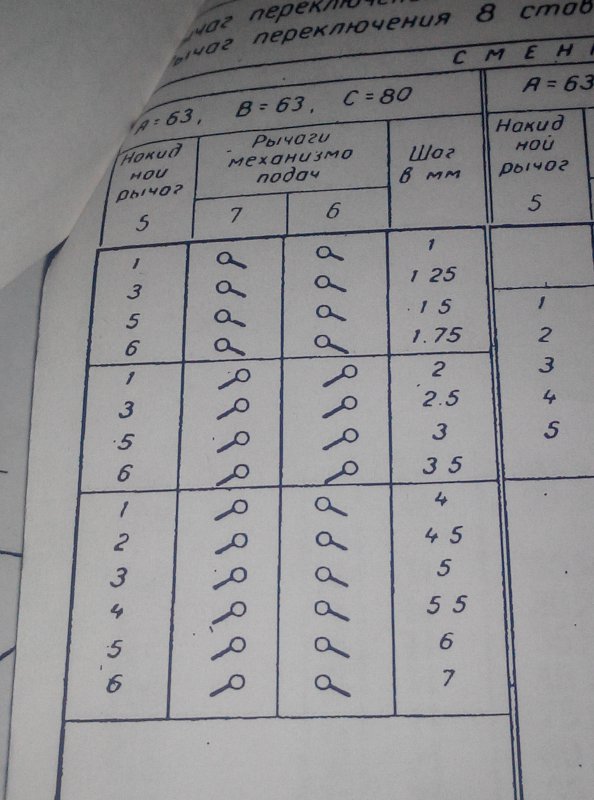 переключен
Рычаг переключения 8 став
С М Е Н
А = 63, В = 63, С = 80
А = 63
Накид ной рычаг
Рычаги механизма подач
Шаг в мм
Накид ной рычаг
5 7 6 5
1 1
3 1 25
5 1 5
6 1.75
1 2
3 2.5
5 3
6 3 5
1 4
2 4 5
3 5
4 5 5
5 6
6 7
1
2
3
4
5